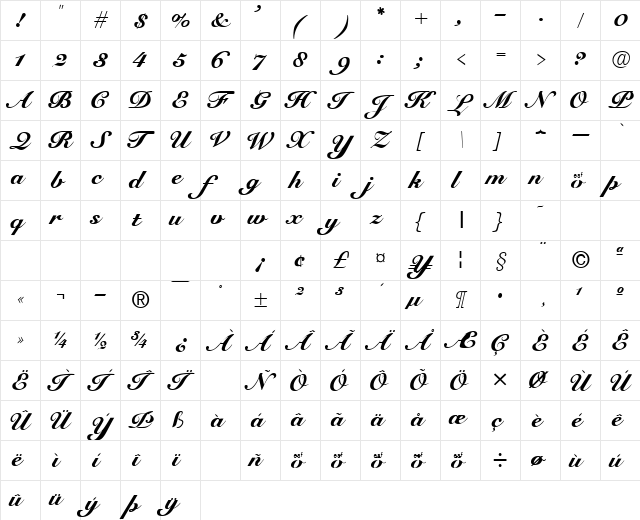 ! " # $ % & ' ( ) * + , - . / 0
1 2 3 4 5 6 7 8 9 : ; < = > ? @
A B C D E F G H I J K L M N O P
Q R S T U V W X Y Z [ \ ] ^ _ `
a b c d e f g h i j k l m n o p
q r s t u v w x y z { | } ~
¡ ¢ £ ¤ ¥ ¦ § ¨ © ª
« ¬ - ® ¯ ° ± ² ³ ´ µ ¶ • ¸ ¹ º
» ¼ ½ ¾ ¿ À Á Â Ã Ä Å Æ Ç È É Ê
Ë Ì Í Î Ï Ñ Ò Ó Ô Õ Ö × Ø Ù Ú
Û Ü Ý Þ ß à á â ã ä å æ ç è é ê
ë ì í î ï ñ ÷ ø ù ú
û ü ý þ ÿ